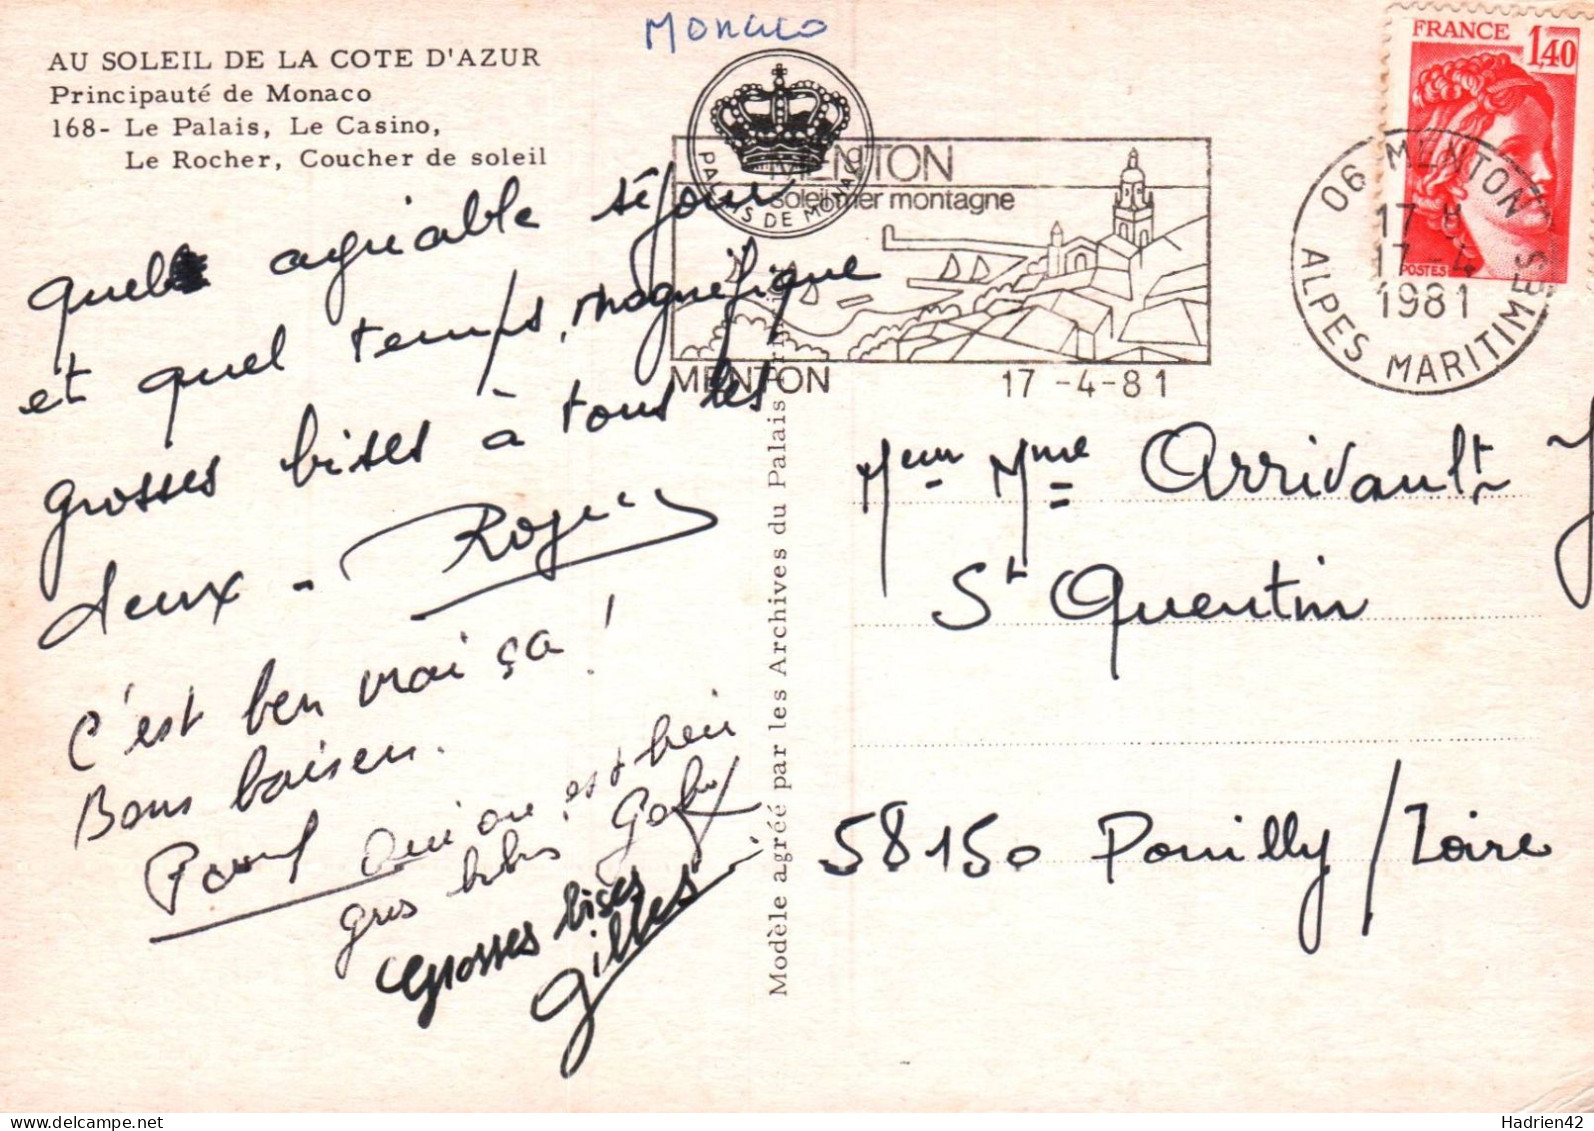 Monaco
AU SOLEIL DE LA COTE D'AZUR
Principauté de Monaco
168- Le Palais, Le Casino,
Le Rocher, Coucher de soleil
PALAIS DE MONACO
MENTON
soleil mer montagne
MENTON 17 -4-81
FRANCE 1,40
POSTES
06 MENTON
17 H
17 -4
1981
ALPES MARITIMES
Quel agréable séjour
et quel temps magnifique
grosses bises à tous les
deux - Roger
C'est ben vrai ça !
Bons baisers.
on est bien
gros
Grosses bises
Gilles
Modèle agréé par les Archives du Palais
Mr Mme Arrivault
St Quentin
58150 Pouilly / Loire
Hadrien42